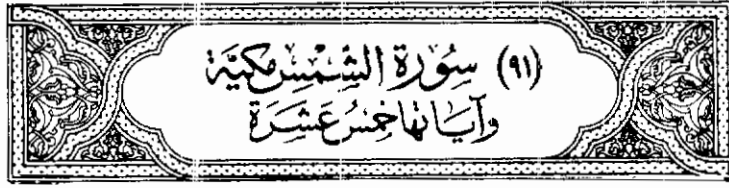 (٩١) سُورَة الشَّمْسِ مَكيَّة
وَآيَاتهَا خَمْسُ عَشَرَة